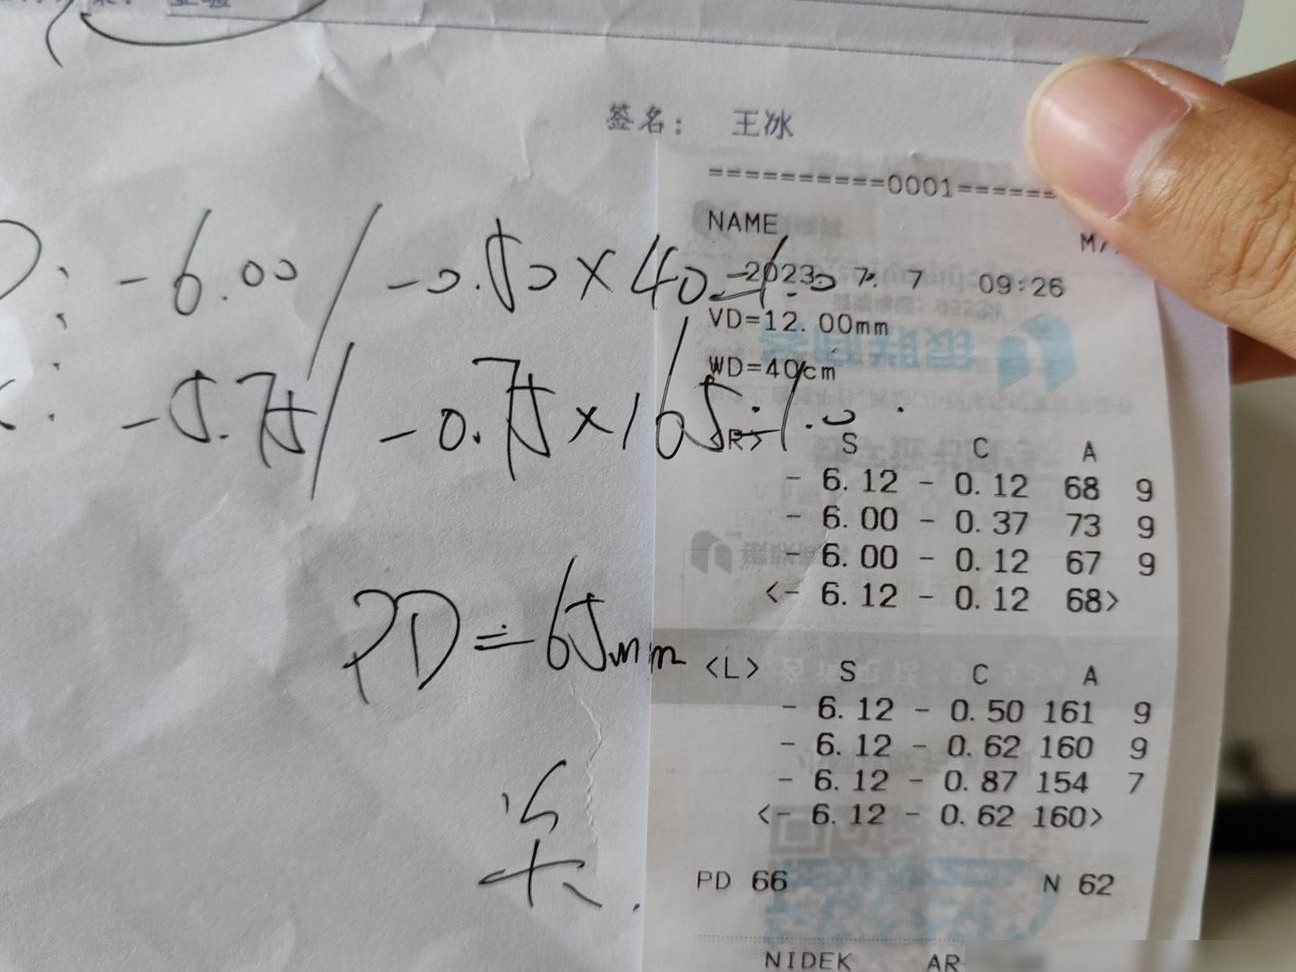 签名： 王冰
==========0001======
NAME
M/
-6.00/-0.50×40=1.0
2023 7. 7 09:26
VD=12.00mm
WD=40cm
-5.75/-0.75×165=1.0.
<R> S C A
- 6.12 - 0.12 68 9
- 6.00 - 0.37 73 9
- 6.00 - 0.12 67 9
<- 6.12 - 0.12 68>
PD=65mm
<L> S C A
- 6.12 - 0.50 161 9
- 6.12 - 0.62 160 9
- 6.12 - 0.87 154 7
<- 6.12 - 0.62 160>
PD 66 N 62
NIDEK AR